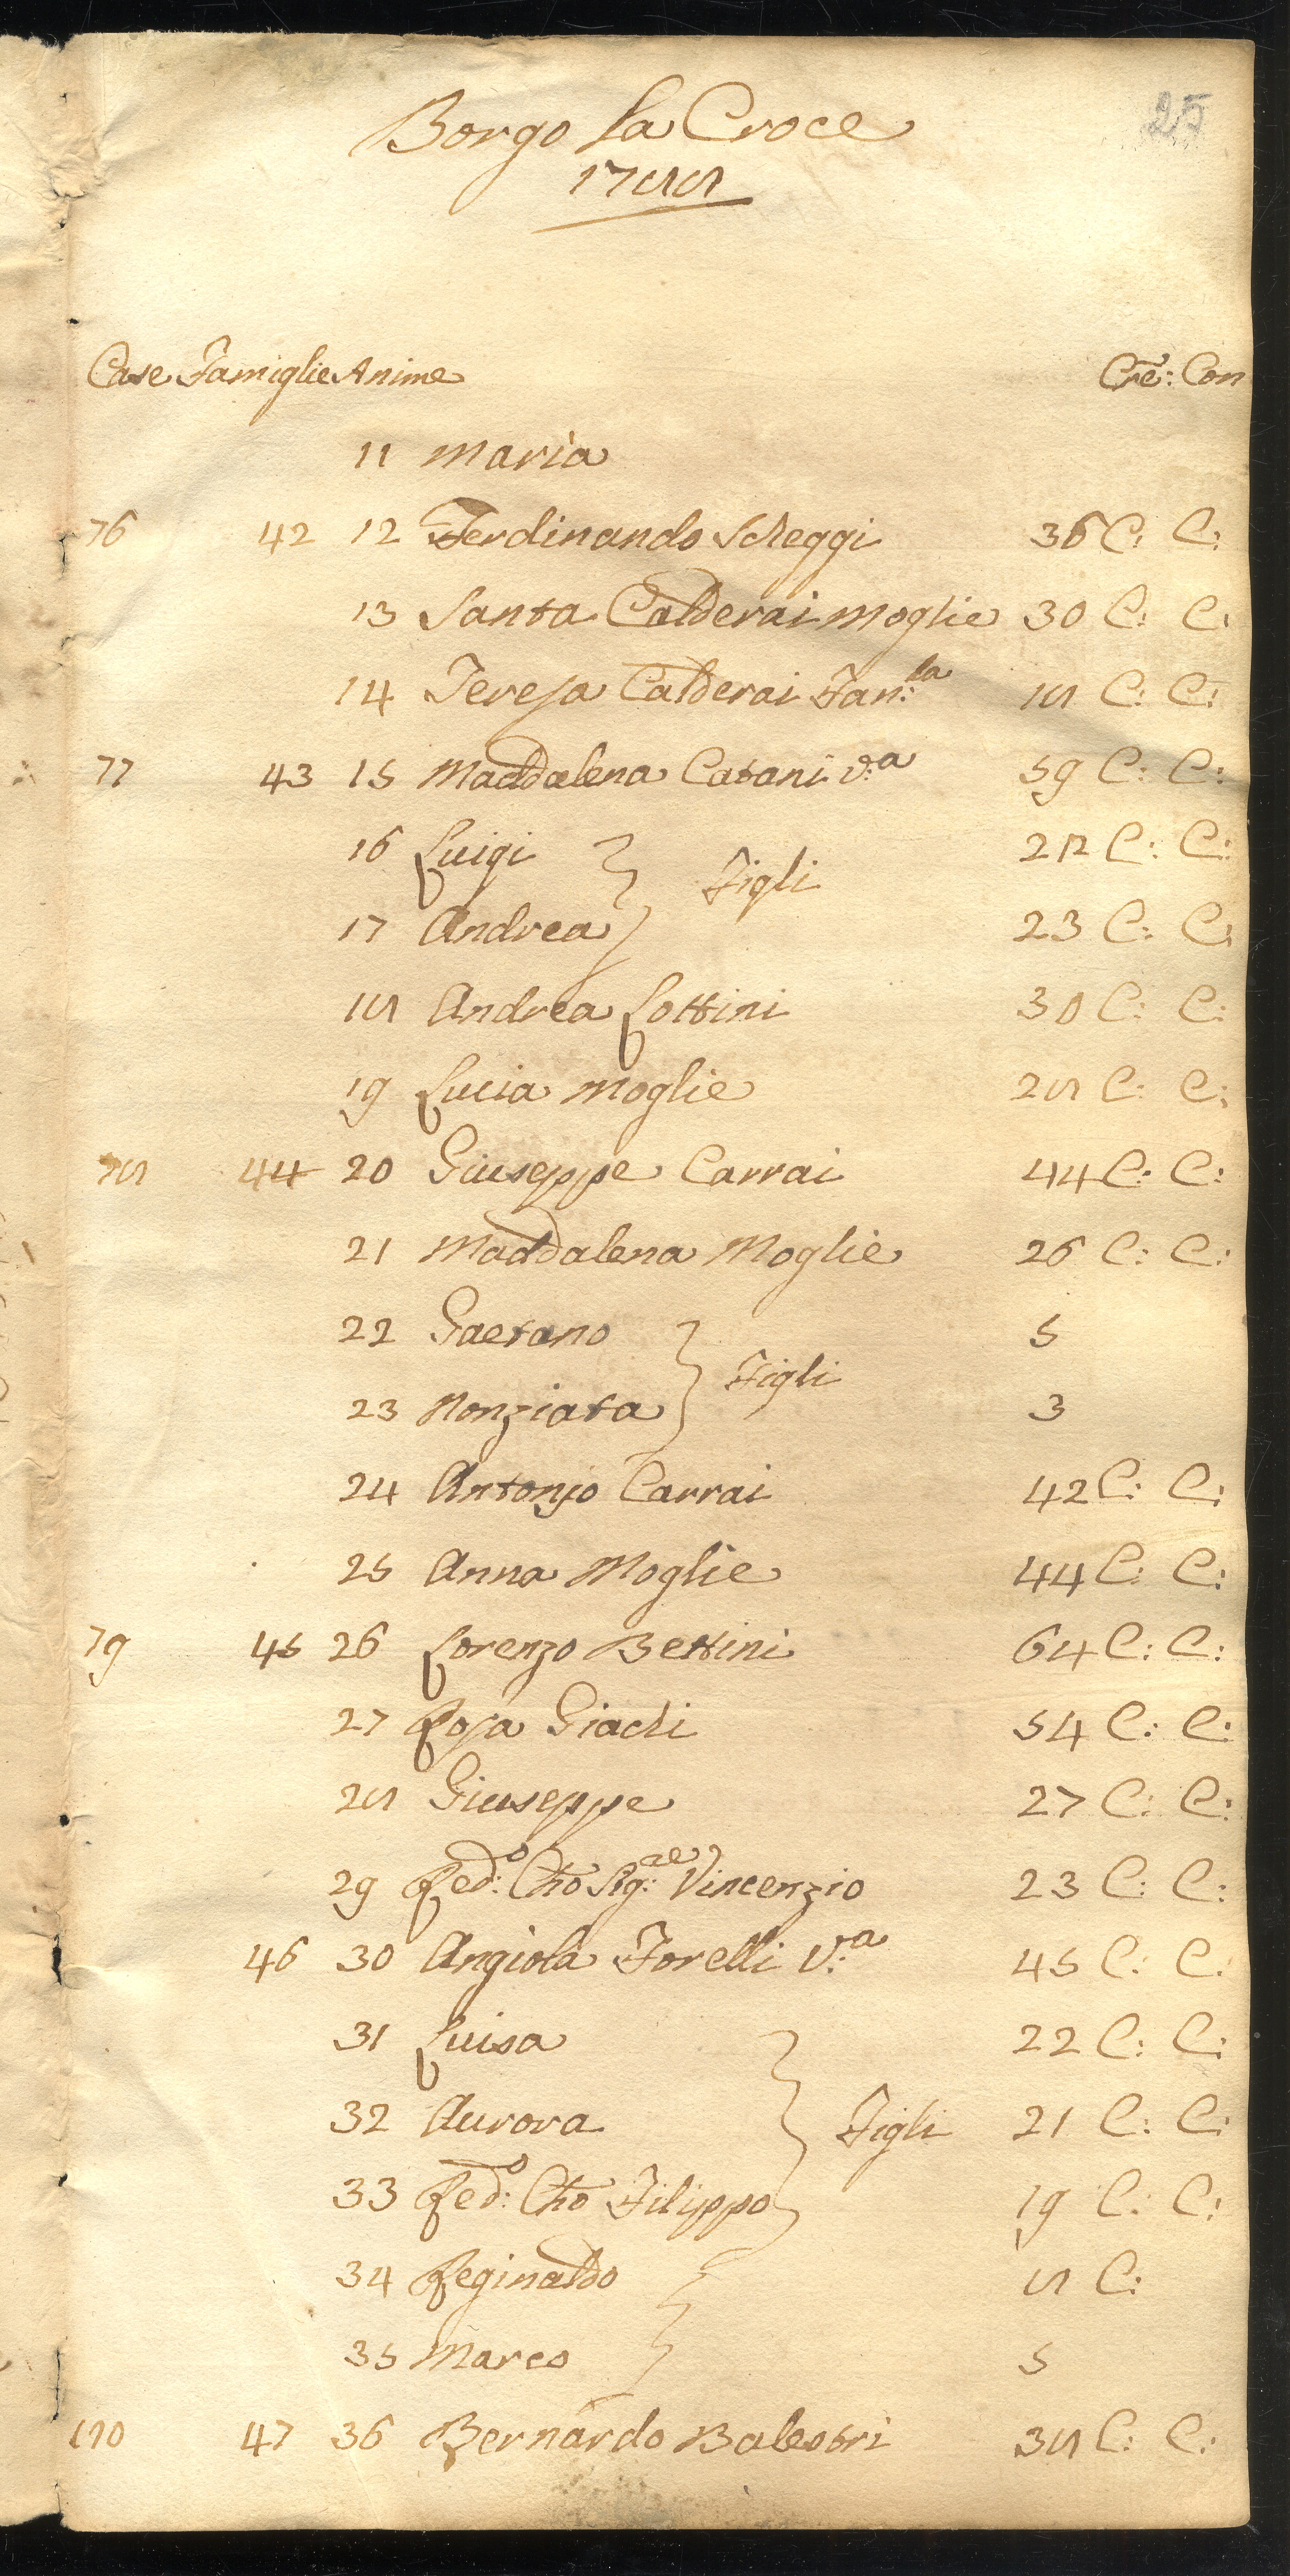 25
Borgo la Croce
1788
Case Famiglie Anime Cre: Con
11 Maria
76 42 12 Ferdinando Scheggi 36 C: C:
13 Santa Calderai Moglie 30 C: C:
14 Teresa Calderai Fan:la 18 C: C:
77 43 15 Maddalena Catani v:a 59 C: C:
16 Luigi 28 C: C:
Figli
17 Andrea 23 C: C:
18 Andrea Lottini 30 C: C:
19 Lucia Moglie 28 C: C:
78 44 20 Giuseppe Carrai 44 C: C:
21 Maddalena Moglie 26 C: C:
22 Gaetano 5
Figli
23 Nonziata 3
24 Antonio Carrai 42 C: C:
25 Anna Moglie 44 C: C:
79 45 26 Lorenzo Bettini 64 C: C:
27 Rosa Giachi 54 C: C:
28 Giuseppe 27 C: C:
29 Red:o Cho Sig:re Vincenzio 23 C: C:
46 30 Angiola Torelli V:a 45 C: C:
31 Luisa 22 C: C:
32 Aurora Figli 21 C: C:
33 Red:o Cho Filippo 19 C: C:
34 Reginaldo 8 C:
35 Marco 5
80 47 36 Bernardo Balestri 38 C: C: